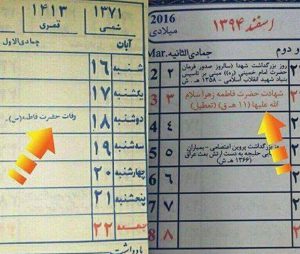 ۱۴۱۳
قمری
۱۳۷۱
شمسی
جمادی‌الاول
آبان
شنبه ۱۶
یکشنبه ۱۷
وفات حضرت فاطمه (س).
دوشنبه ۱۸
سه‌شنبه ۱۹
چهارشنبه ۲۰
پنجشنبه ۲۱
جمعه ۲۲
یادداشت
2016
میلادی
اسفند ۱۳۹۴
Mar.
جمادی الثانیه
و دوم
2 ۲
روز بزرگداشت شهدا (سالروز صدور فرمان
حضرت امام خمینی (ره) مبنی بر تأسیس
بنیاد شهید انقلاب اسلامی - ۱۳۵۸ هـ ش)
3 ۳
شهادت حضرت زهرا سلام
الله علیها (۱۱ هـ ق) (تعطیل)
۴
5 ۵
روز بزرگداشت پروین اعتصامی - بمباران
حلبجه به دست ارتش بعث عراق
(۱۳۶۶ هـ ش)
6 ۶
۷
8 ۸